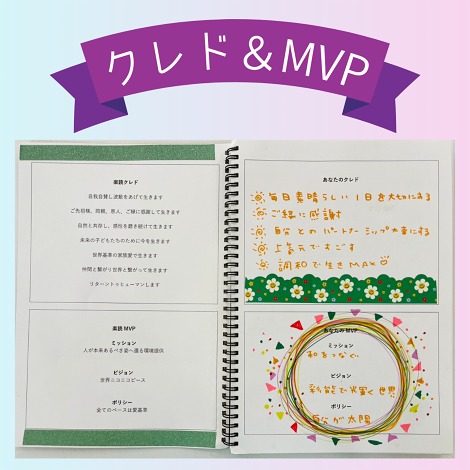 クレド&MVP
楽読クレド
自我自賛し波動をあげて生きます
ご先祖様、両親、恩人、ご縁に感謝して生きます
自然と共存し、感性を磨き続けて生きます
未来の子どもたちのために今を生きます
世界基準の家族愛で生きます
仲間と繋がり世界と繋がって生きます
リターントゥヒューマンします
楽読 MVP
ミッション
人が本来あるべき姿へ還る環境提供
ビジョン
世界ニコニコピース
ポリシー
全てのベースは愛基準
あなたのクレド
毎日素晴らしい1日を大切にする
ご縁に感謝
自分とのパートナーシップ大事にする
上気元ですごす
調和で生きMAX
あなたの MVP
ミッション
和をつなぐ
ビジョン
彩能で光輝く世界
ポリシー
自分が太陽